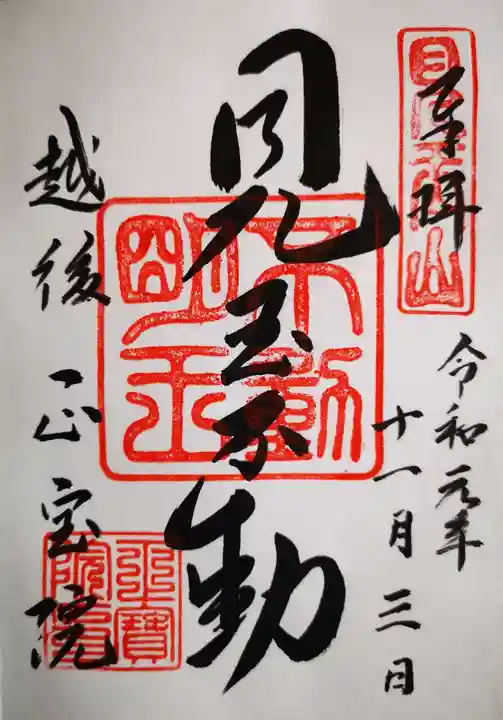 奉拝
令和元年
十一月三日
見玉不動
越後 正宝院
不動明王